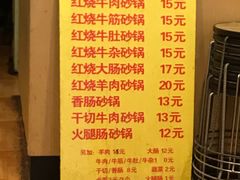 红烧牛肉砂锅 15元
红烧牛筋砂锅 15元
红烧牛肚砂锅 15元
红烧牛杂砂锅 15元
红烧大肠砂锅 17元
红烧羊肉砂锅 20元
香肠砂锅 13元
干切牛肉砂锅 13元
火腿肠砂锅 12元
另加: 羊肉 15元 大肠 12元
牛肉/牛筋/牛肚/牛杂10元
干切/香肠 8元 蔬菜 2元